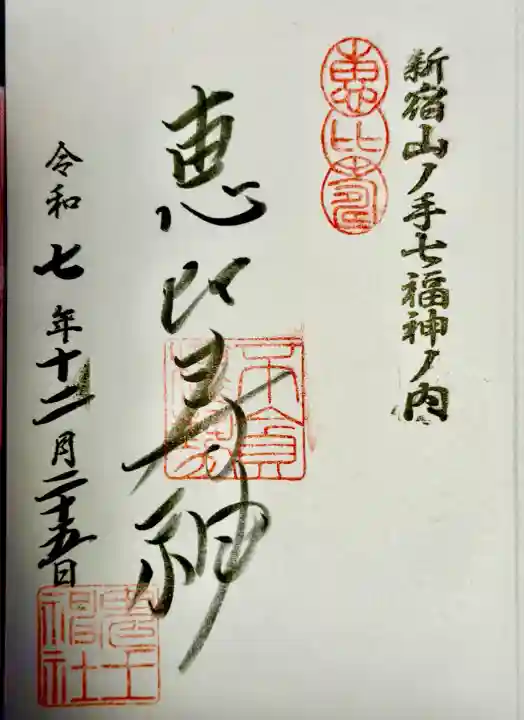 新宿山ノ手七福神ノ内
恵比寿
恵比寿神
令和七年十二月二十五日
鬼王
神社